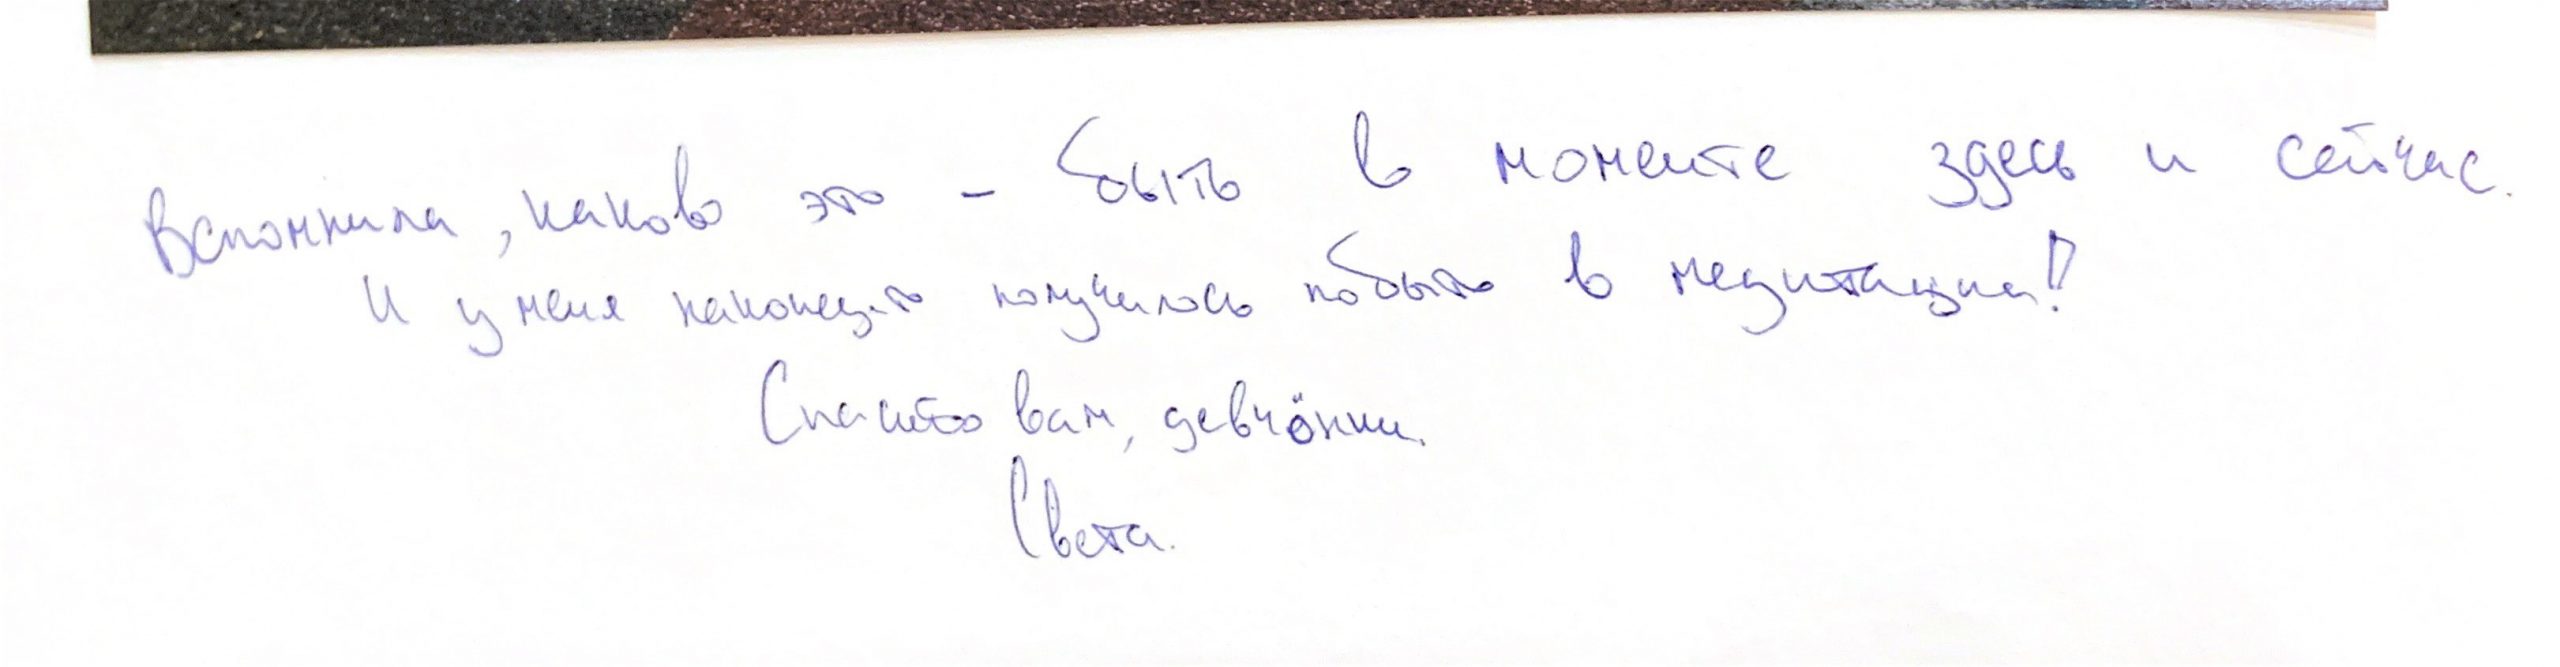 Вспомнила, каково это - быть в моменте здесь и сейчас.
И у меня наконец-то получилось побыть в медитации!
Спасибо вам, девчонки.
Света.